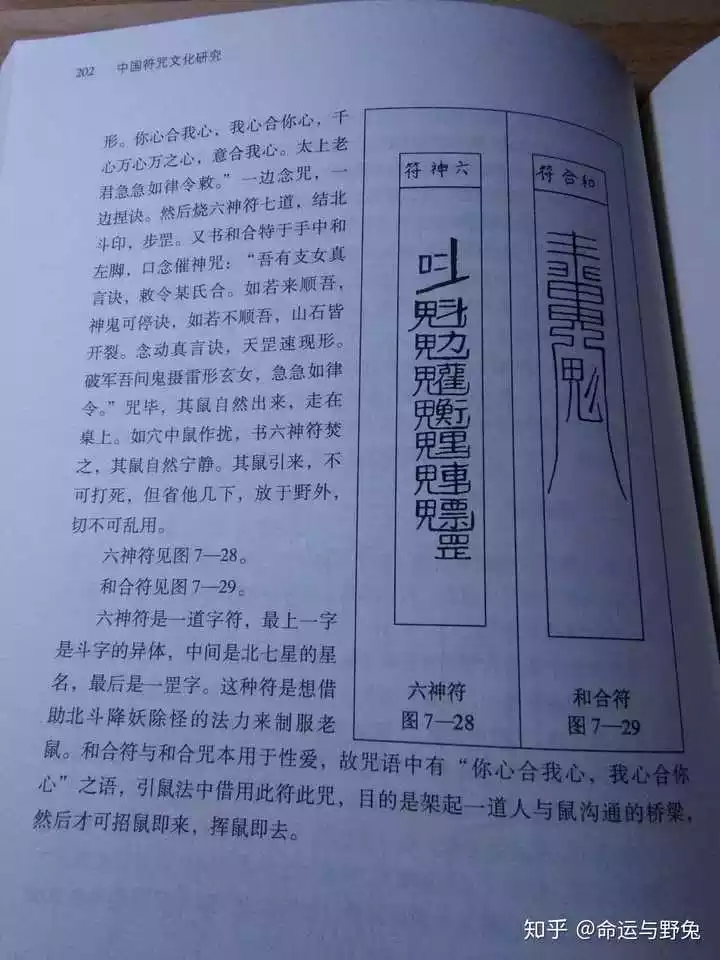 202 中国符咒文化研究
形。你心合我心，我心合你心，千
心万心万之心，意合我心。太上老
君急急如律令敕。”一边念咒，一
边捏诀。然后烧六神符七道，结北
斗印，步罡。又书和合特于手中和
左脚，口念催神咒：“吾有支女真
言诀，敕令某氏合。如若来顺吾，
神鬼可停诀，如若不顺吾，山石皆
开裂。念动真言诀，天罡速现形。
破军吾问鬼摄雷形玄女，急急如律
令。”咒毕，其鼠自然出来，走在
桌上。如穴中鼠作扰，书六神符焚
之，其鼠自然宁静。其鼠引来，不
可打死，但省他几下，放于野外，
切不可乱用。
六神符见图7—28。
和合符见图7—29。
六神符是一道字符，最上一字
是斗字的异体，中间是北七星的星
名，最后是一罡字。这种符是想借
助北斗降妖除怪的法力来制服老
鼠。和合符与和合咒本用于性爱，故咒语中有“你心合我心，我心合你
心”之语，引鼠法中借用此符此咒，目的是架起一道人与鼠沟通的桥梁，
然后才可招鼠即来，挥鼠即去。
符神六
罡
六神符
图7—28
符合和
和合符
图7—29
知乎 @命运与野兔